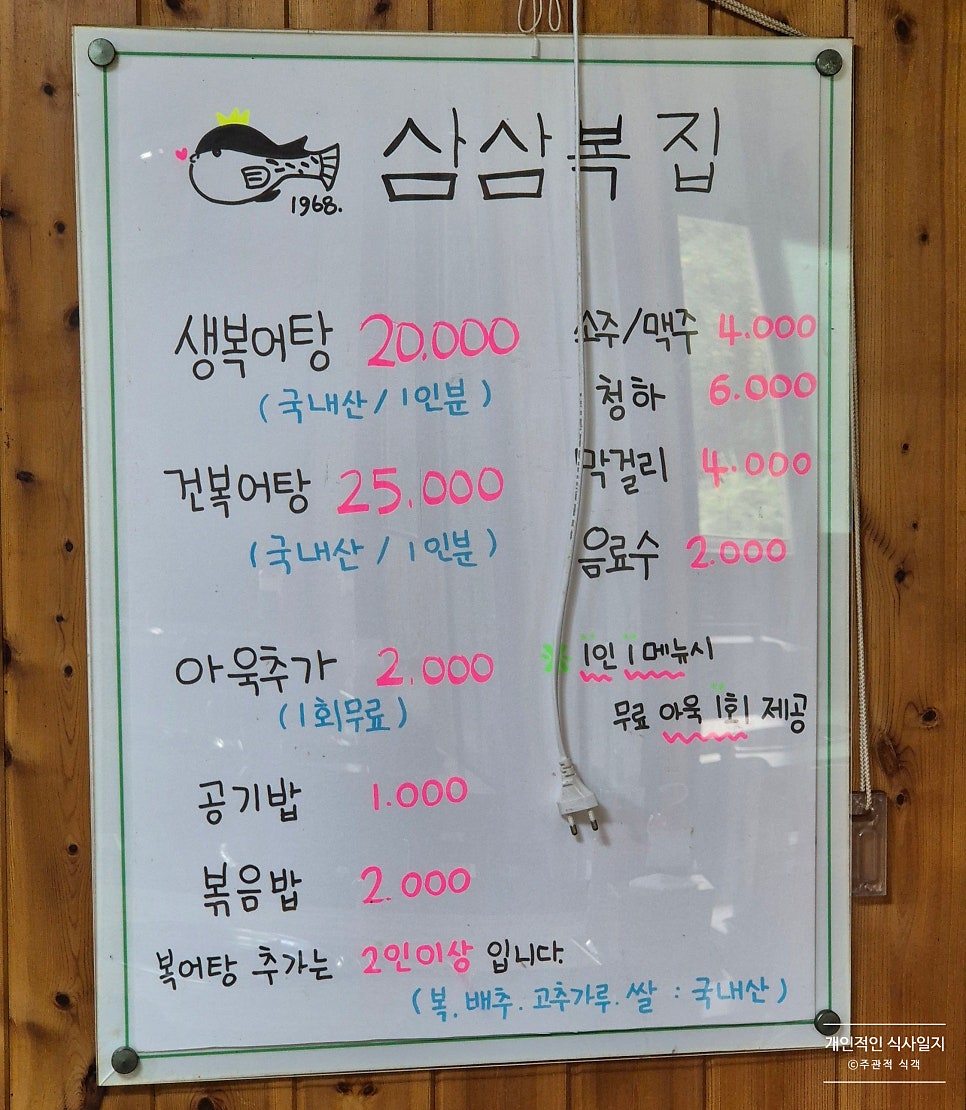 삼삼복집
1968.
생복어탕 20.000
(국내산/1인분)
건복어탕 25.000
(국내산/1인분)
아욱추가 2.000
(1회무료)
공기밥 1.000
볶음밥 2.000
복어탕 추가는 2인이상 입니다.
(복.배추.고추가루.쌀 : 국내산)
소주/맥주 4.000
청하 6.000
막걸리 4.000
음료수 2.000
1인 1메뉴시
무료 아욱 1회 제공
개인적인 식사일지
©주관적 식객